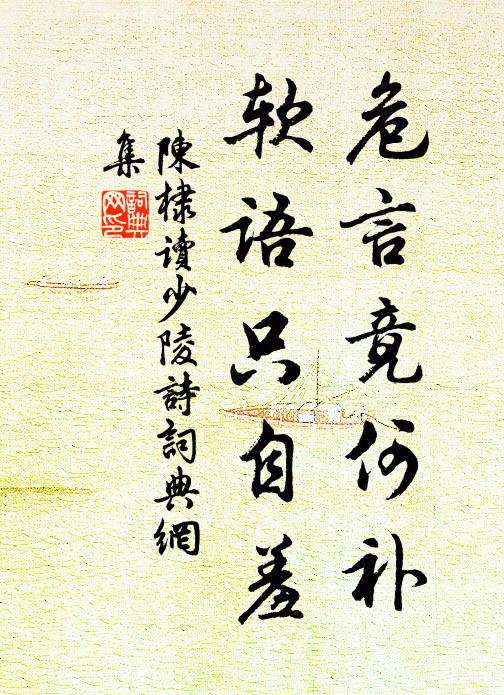 危言竟何补
软语只自羞
陳棣讀少陵詩詞典網
集
詞典
网印